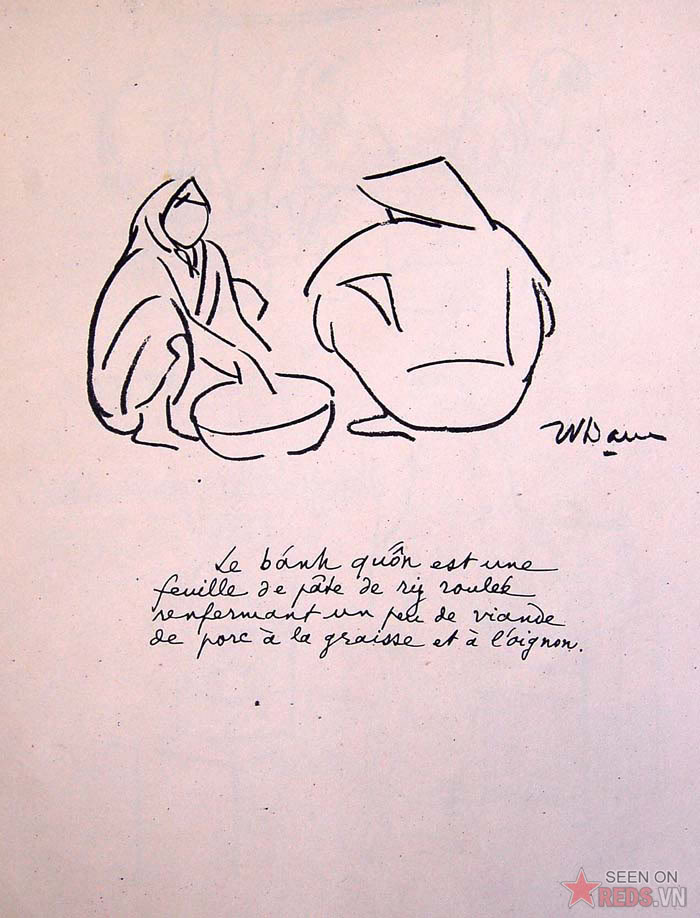 Le bánh quốn est une
feuille de pâte de riz roulée
renfermant un peu de viande
de porc à la graisse et à l'oignon.
SEEN ON
REDS.VN